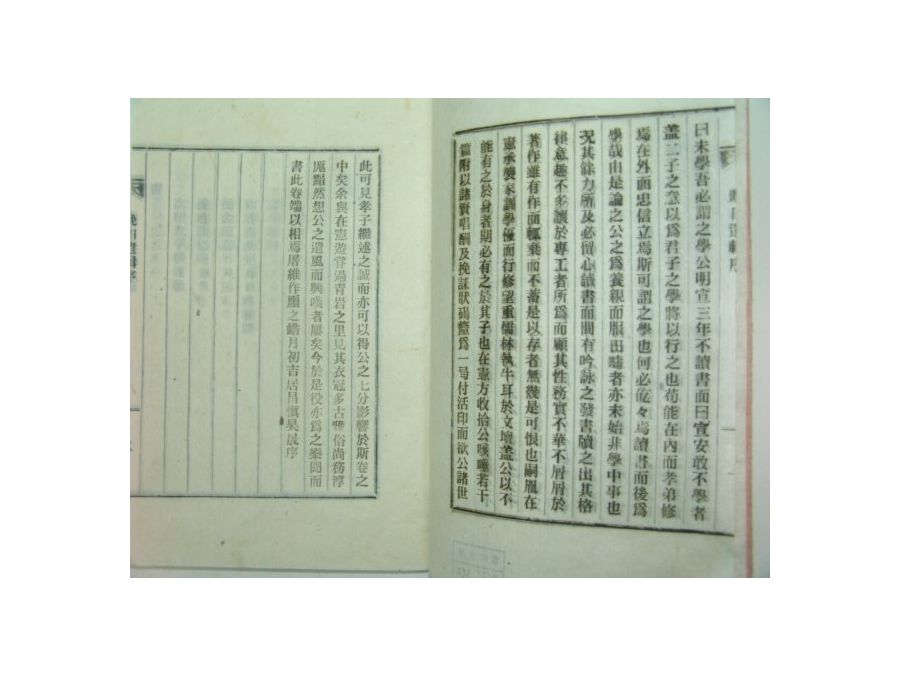 曰未學吾必謂之學公明宣三年不讀書而曰宣安敢不學者
蓋二子之意以爲君子之學將以行之也苟能在內而孝弟修
焉在外而忠信立焉斯可謂之學也何必矻々焉讀書而後爲
學哉由是論之公之爲養親而服田疇者亦未始非學中事也
况其餘力所及必留心讀書而間有吟詠之發書牘之出其格
律意趣不多讓於專工者所爲而顧其性務實不華不屑屑於
著作雖有作而輒棄而不蓄是以存者無幾是可恨也嗣胤在
憲承襲家訓學優而行修望重儒林執牛耳於文壇蓋公以不
能有之於身者期必有之於其子也在憲方收拾公咳唾若干
篇附以諸賢唱酬及挽誄狀碣釐爲一局付活印而欲公諸世
此可見孝子繼述之誠而亦可以得公之七分影響於斯卷之
中矣余與在憲遊嘗過青岩之里見其衣冠多古雅俗尚務淳
厖黯然想公之遺風而興嘆者屢矣今於是役亦爲之樂聞而
書此卷端以相焉屠維作噩之蜡月初吉居昌愼昊晟序